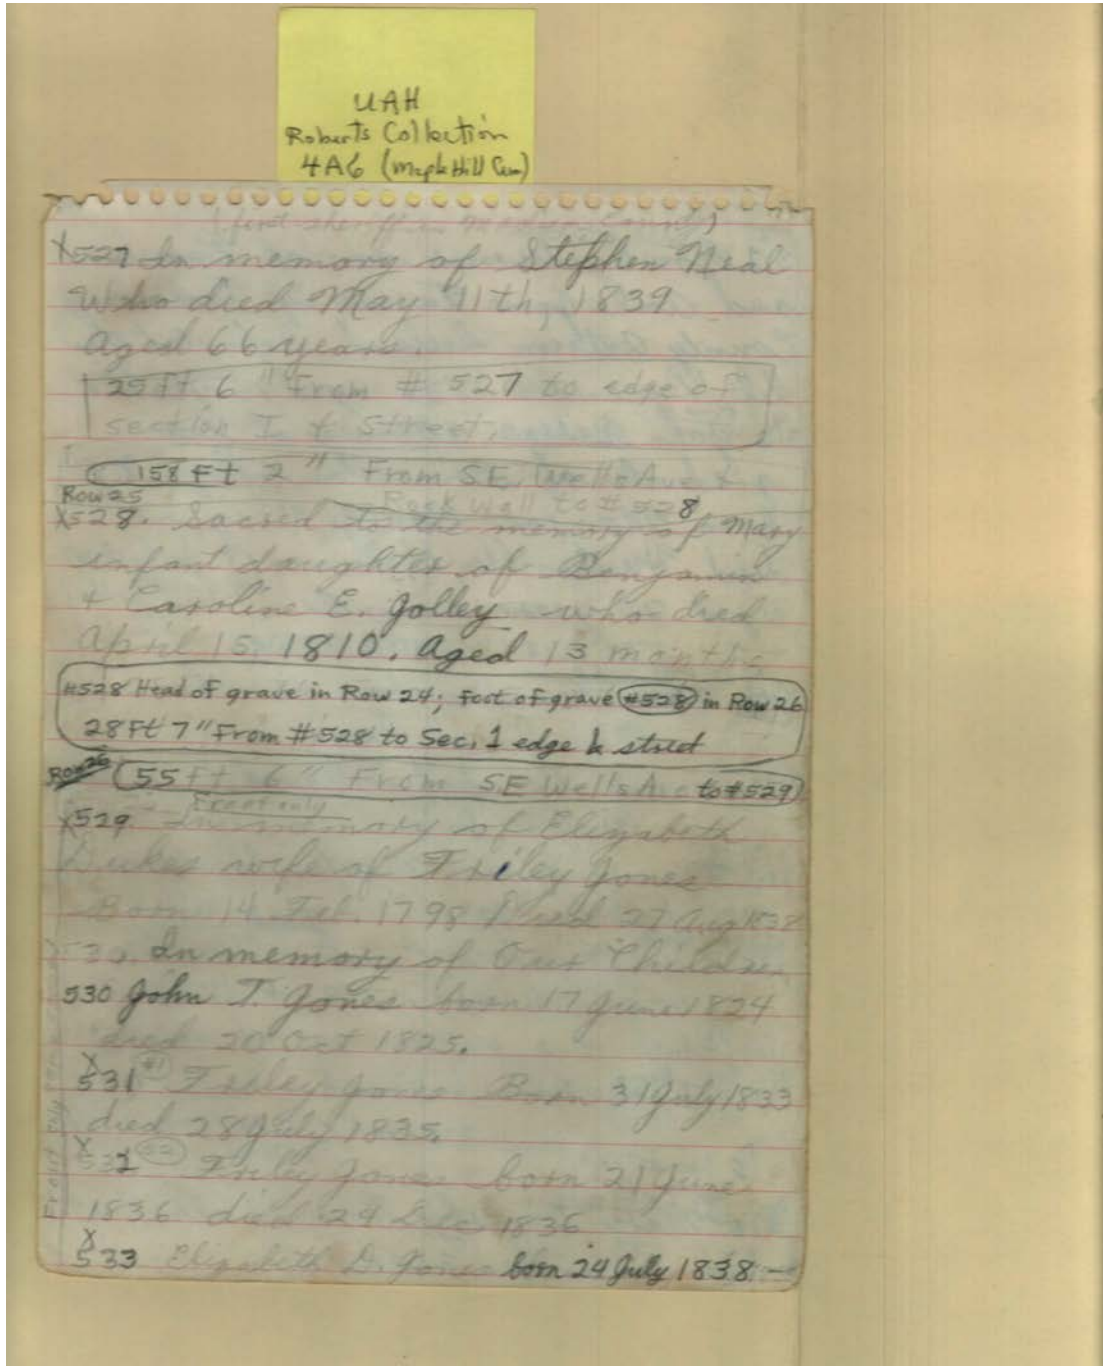 UAH
Roberts Collection
4A6 (Maple Hill Cem)
(first sheriff in Madison County)
X527 In memory of Stephen Neal
Who died May 11th, 1839
Aged 66 years.
25 ft 6 " From # 527 to edge of
section I & Street.
158 Ft 2 " From SE. Wells Ave &
Row 25
Rock Wall to # 528
X528. Sacred to the memory of Mary
infant daughter of Benjamin
+ Caroline E. Jolley who died
April 15, 1810. Aged 13 months
#528 Head of grave in Row 24; foot of grave #528 in Row 26
28 Ft 7" From #528 to Sec, 1 edge & street
Row 26
55 ft 6 " From SE Wells Ave to #529
Front only
X529 In memory of Elizabeth
Dukes wife of Friley Jones
Born 14 Feb. 1798 Died 27 Aug 1838
530. In memory of Our Children
530 John T. Jones born 17 June 1824
died 20 Oct 1825.
X
531 #1 Friley Jones Born 31 July 1833
died 28 July 1835.
X
532 #2 Friley Jones born 21 June
1836 died 29 Dec. 1836
X
533 Elizabeth D. Jones born 24 July 1838 —
Front only